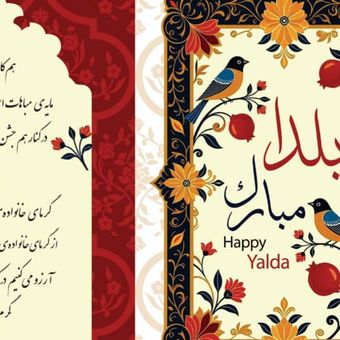 هم کا
مایه‌ی مباهات ا
در کنار هم جشن
گرمای خانواده‌ی
از گرمای خانواده‌ی
آرزو می کنیم در
یلدا
مبارک
Happy
Yalda